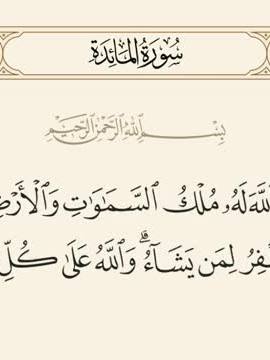 سُورَةُ المَائدَةِ
بِسْمِ اللَّهِ الرَّحْمَٰنِ الرَّحِيمِ
للَّهَ لَهُۥ مُلْكُ ٱلسَّمَٰوَٰتِ وَٱلْأَرْضِ
فِرُ لِمَن يَشَآءُ ۗ وَٱللَّهُ عَلَىٰ كُلِّ